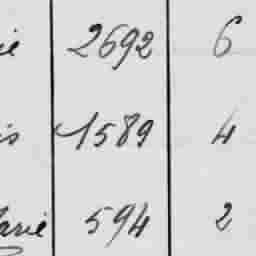 ie 2692 6
is 1589 4
Marie 594 2